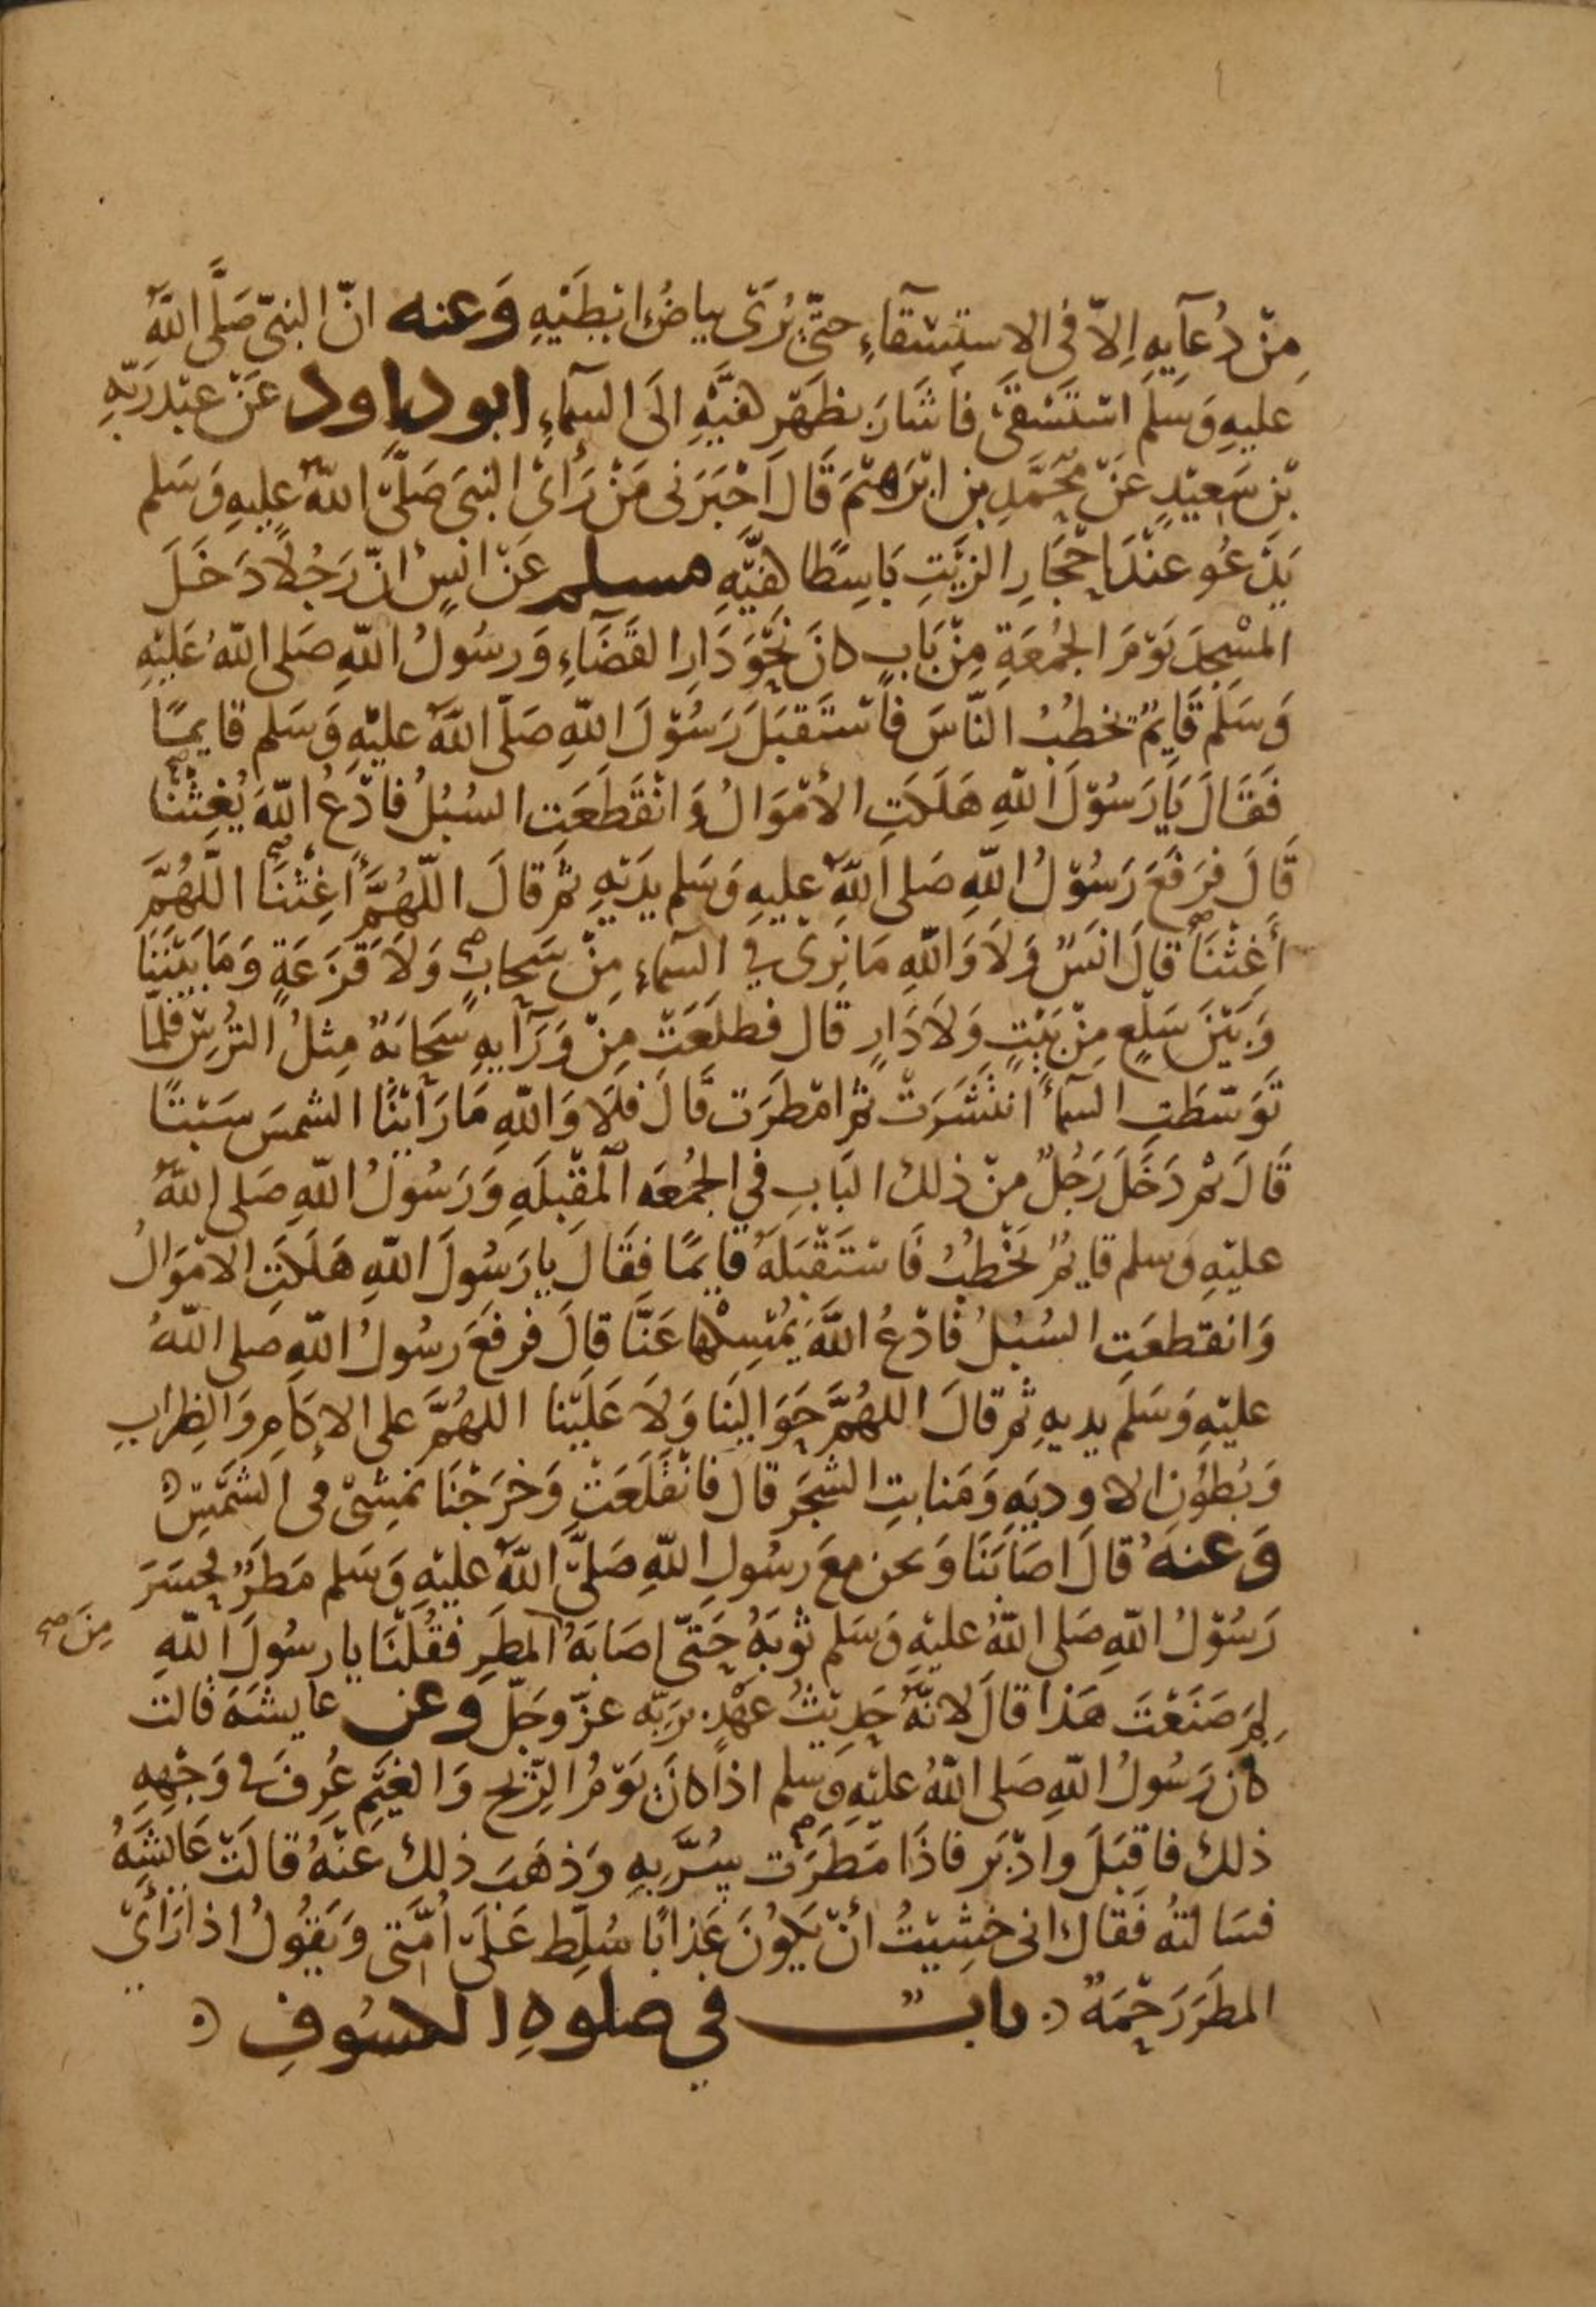 مِنْ دُعَآيِهِ اِلاّ فى الاستِسْقآءِ حتّى يُرَى بياضُ ابْطَيْهِ وَعنه انّ النبىّ صَلَّى اللّهُ
عليهِ وَسَلَّمَ اسْتَسْقَى فاَشَارَ بظَهْرِ كفيَّهِ الَى السمآءِ ابو داود عَنْ عَبْدرَبِّهِ
بْنِ سَعِيْدٍ عَنْ مُحَمَّدِ بنِ ابْرَاهِيْمَ قَالَ اَخْبَرَنى مَنْ رَأىْ النبىَ صَلَّى اللّهُ عليهِ وَسَلم
يَدْعُو عنْدَ احْجَارِ الزَيْتِ بَاسِطًا كفيَّهِ مسلم عَنْ انَسٍ انّ رَجُلاً دَخَلَ
المسْجِدَ يَوْمَ الجُمُعَةِ مِنْ بَابٍ كانَ نَحْوَ دَارِ القَضَآءِ وَرسُولُ اللّهِ صَلى اللّهُ عَلَيْهِ
وَسَلَّمَ قَايِمٌ يخطُبُ النّاسَ فاسْتَقبَلَ رَسُوْلَ اللّهِ صَلّى اللّهُ عليْهِ وَسَلم قايمًا
فَقَالَ يَا رَسُوْلَ اللّهِ هَلَكَتِ الأمْوَالُ وَانْقَطَعَتِ السُبُلُ فادْعُ اللّهَ يُغِثْنَا
قَالَ فرَفَعَ رَسُوْلُ اللّهِ صَلى اللّهُ عليهِ وَسَلم يدَيْهِ ثمّ قالَ اللّهُمَّ اَغِثْنَا اللّهُمَّ
أغِثْنَا قالَ انَسٌ وَلاَ وَاللّهِ مَا نرَىْ فِي السمآءِ مِنْ سَحابٍ وَلاَ قَزَعَةٍ وَمَا بَيْنَنَا
وَبَيْنَ سَلْعٍ مِنْ بَيْتٍ وَلاَ دَارٍ قال فطلَعَتْ مِنْ وَرَآيهِ سَحَابَةٌ مِثلُ التُرْسِ فلمّا
تَوَسّطَتِ السمآءَ انتشَرَتْ ثمّ امْطَرَت قَالَ فلاَ وَاللّهِ مَا رَاَيْنَا الشمسَ سَبْتًا
قَالَ ثمّ دَخَلَ رَجُلٌ منْ ذلك البَابِ في الجُمُعَه المقْبِلَهِ وَرَسُولُ اللّهِ صَلى اللّهُ
عليْهِ وَسلم قايمٌ يَخْطُبُ فَاسْتَقْبَلَهُ قايمًا فقَالَ يا رَسُولَ اللّهِ هَلَكَتِ الامْوَالُ
وَانقطعَتِ السُبُلُ فادْعُ اللّهَ يُمْسِكْهَا عَنَّا قالَ فرفعَ رسُولُ اللّهِ صلى اللّهُ
عليْهِ وَسَلمَ يديهِ ثمّ قالَ اللهُمَّ حَوَاليْنَا وَلاَ عَلَيْنا اللهُمَّ على الاكَامِ وَالظِرابِ
وَبُطُونِ الاوديَهِ وَمَنابتِ الشجَرِ قال فَانْقَلَعَتْ وَخرَجْنَا نمشِىْ فى الشمْسِ
وَعنهُ قالَ اصَابَنَا وَنحن معَ رسُولِ اللّهِ صَلىَّ اللّهُ عليْهِ وَسَلم مَطَرٌ فحسَرَ
رَسُوْلُ اللّهِ صَلى اللّهُ عليْهِ وَسَلم ثوْبَهُ حَتّى اصَابَهُ المَطَرِ فقُلْنَا يا رسُولَ اللّهِ
مِنَ صح
لِمَ صَنَعْتَ هَذا قالَ لانّهُ حَدِيْثُ عهْدٍ بِرَبّهِ عزّ وَجَلّ وعن عايشَهَ قالت
كانَ رَسُولُ اللّهِ صَلى اللّهُ عليْهِ وَسلم اذا كانَ يَوْمُ الرّيْحِ وَالغَيْمِ عُرِفَ فى وَجْهِهِ
ذلك فاقبَلَ وادْبَر فاذَا مَطَرَت سُرَّ بِهِ وَذهَبَ ذلك عَنْهُ قالَتْ عَايشَهُ
فسَالتهُ فَقالَ انى خشِيْتُ أنْ يَكُوْنَ عَذابًا سُلّط عَلَى اُمَّتى وَيَقُولُ اذا رَأىْ
المطَرَ رَحْمَةٌ باب في صلوهِ الكسُوفِ